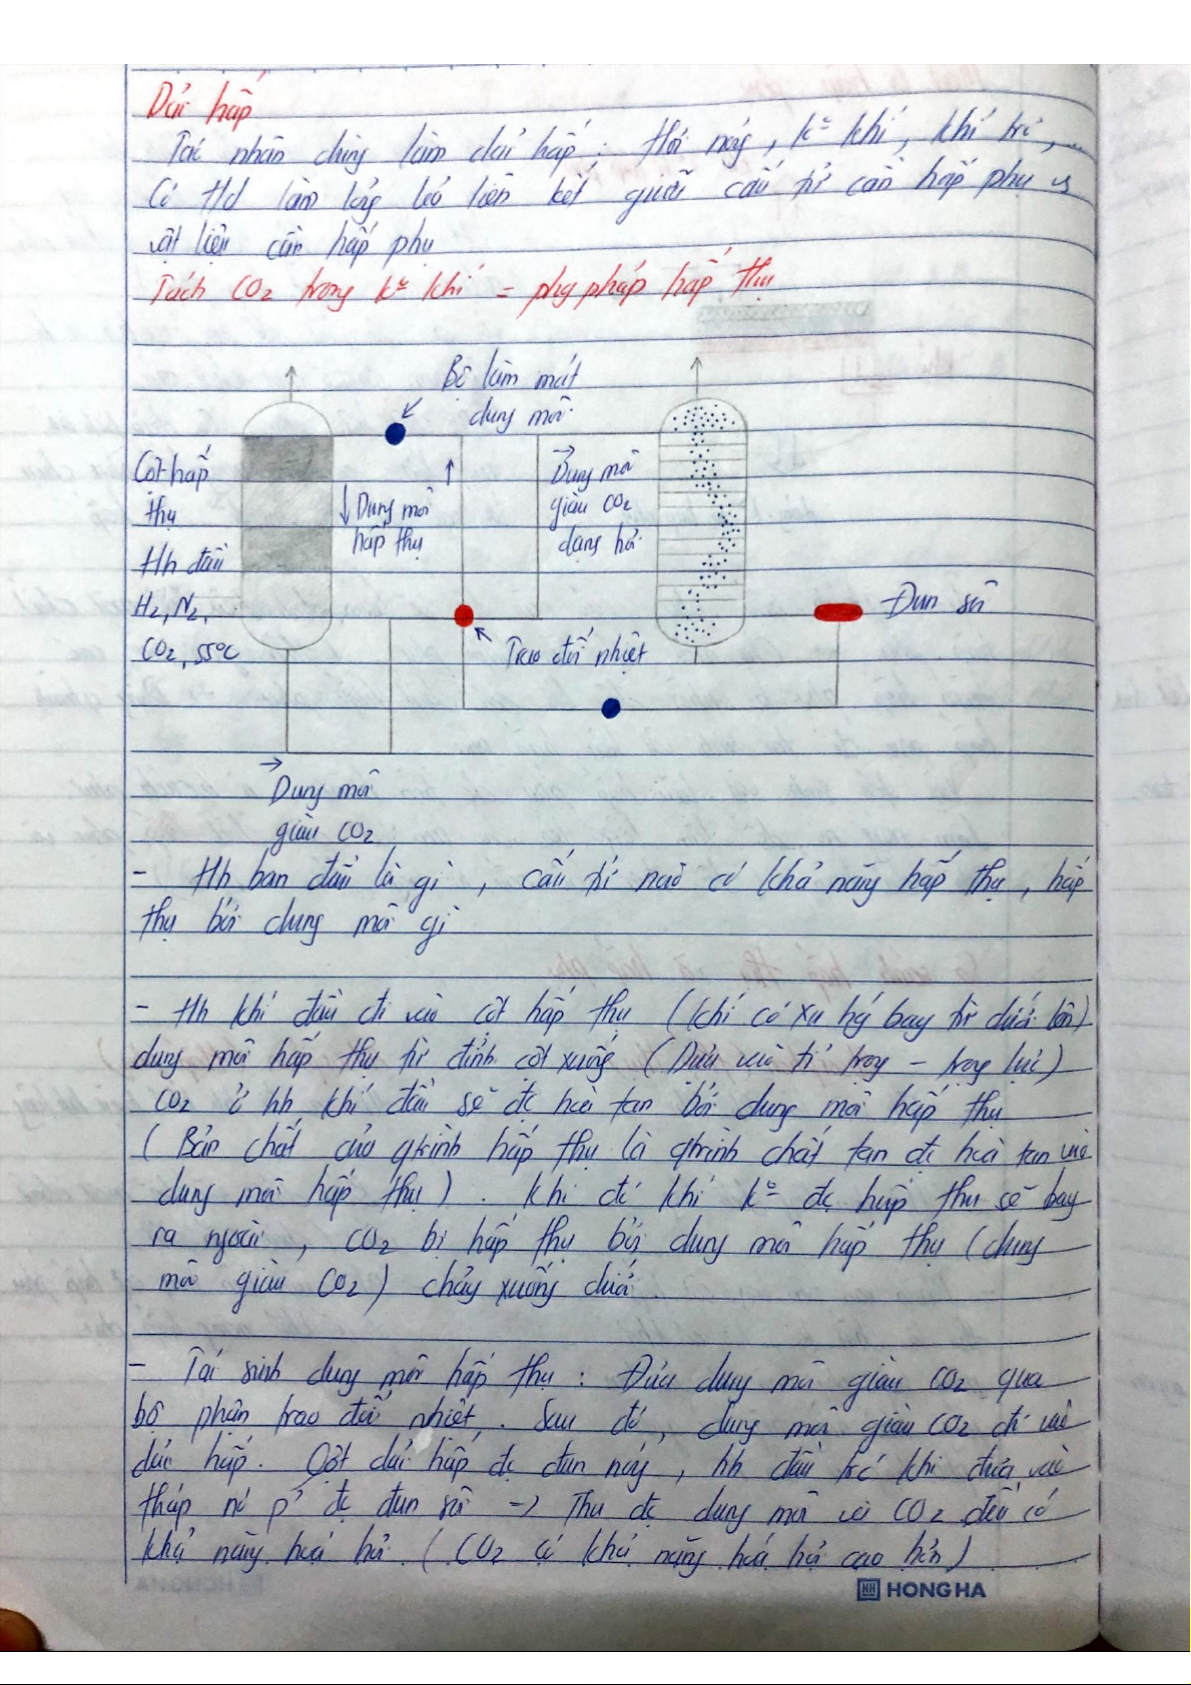 Dải hấp
Tác nhân dùng làm dải hấp : Hơi nóng, kº khí, khí trơ,...
Có td làm lỏng lẻo liên kết giữa cấu tử cần hấp phụ vs
vật liệu cần hấp phụ
Tách CO2 trong kº khí = phg pháp hấp thụ
Bộ làm mát
dung môi
Cột hấp
thụ
Hh đầu
H2, N2,
CO2, 55ºC
↓ Dung môi
hấp thụ
→
Dung môi
giàu CO2
dạng hơi
Đun sôi
Trao đổi nhiệt
→
Dung môi
giàu CO2
- Hh ban đầu là gì , cấu tử nào có khả năng hấp thụ , hấp
thụ bởi dung môi gì
- Hh khí đầu đi vào cột hấp thụ (khí có xu hg bay từ dưới lên)
dung môi hấp thụ từ đỉnh cột xuống (Dựa vào tỉ trọng - trọng lực)
CO2 ở hh khí đầu sẽ đc hoà tan bởi dung môi hấp thụ
( Bản chất của qtrình hấp thụ là qtrình chất tan đc hoà tan vào
dung môi hấp thụ ) . Khi đó khí kº đc hấp thụ sẽ bay
ra ngoài , CO2 bị hấp thụ bởi dung môi hấp thụ (dung
môi giàu CO2 ) chảy xuống dưới
- Tái sinh dung môi hấp thụ : Đưa dung môi giàu CO2 qua
bộ phận trao đổi nhiệt. Sau đó , dung môi giàu CO2 đi vào
dải hấp. Cột dải hấp đc đun nóng , hh đầu trc khi đưa vào
tháp nó đc đun sôi → Thu đc dung môi và CO2 đều có
khả năng hoá hơi ( CO2 có khả năng hoá hơi cao hơn )
HONG HA